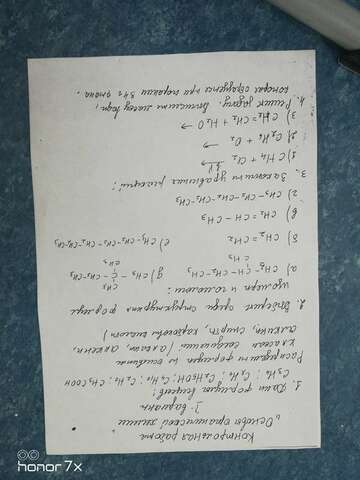 Контрольная работа
„Основы органической химии"
I вариант
1. Даны формулы веществ:
C3H8; C2H4; C2H5OH; C2H2; CH3COOH
Распределите формулы по основным
классам соединений (алкан, алкен,
алкин, спирт, карбоновая кислота)
2. Выберите среди структурных формул
изомеры и гомологи:
а) CH3-CH-CH2-CH3
CH3
д) CH3-C-CH3
CH3
CH3
б) CH2=CH2
е) CH3-CH2-CH2-CH2-CH3
в) CH2=CH-CH3
г) CH3-CH2-CH2-CH2-CH3
3. Закончить уравнения реакций:
1) CH4 + Cl2 →
2) C2H6 + O2 →
3) CH2=CH2 + H2O →
4. Решить задачу. Вычислите массу воды,
которая образуется при сгорании 54г этана.
honor 7x